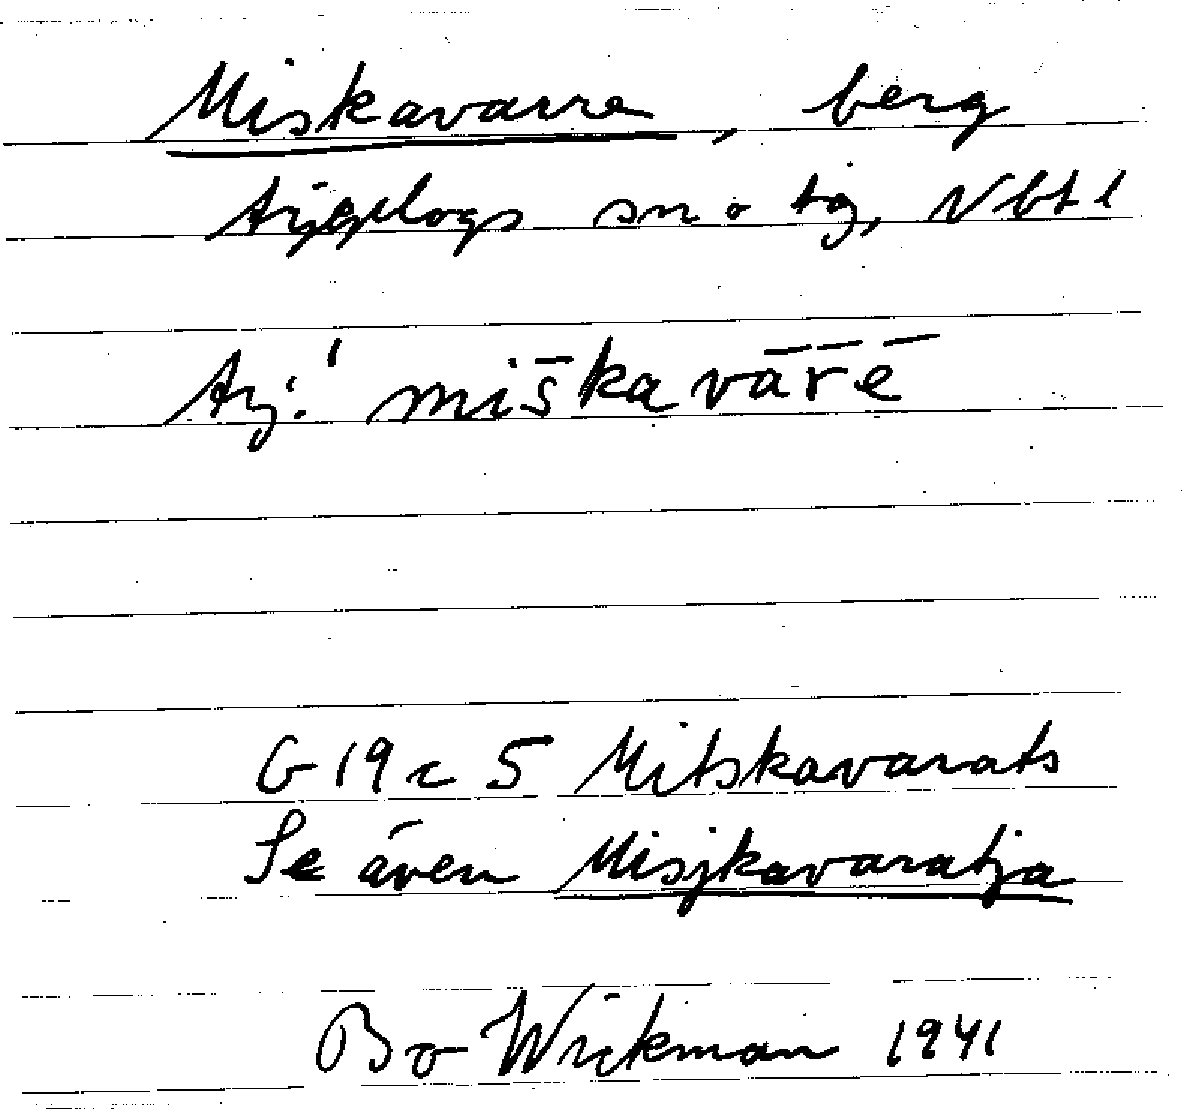 Miskavarre, berg
Arjeplogs sn o tg, Vbtl
Arj.' miš̄kavār̄ē
G 19 c 5 Mitskavarats
Se även Misjkavaratja
Bo Wickman 1941